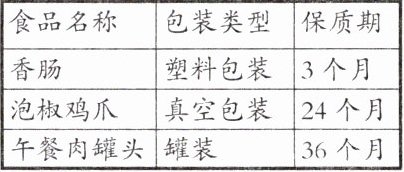 食品名称 包装类型 保质期
香肠 塑料包装 3个月
泡椒鸡爪 真空包装 24个月
午餐肉罐头 罐装 36个月